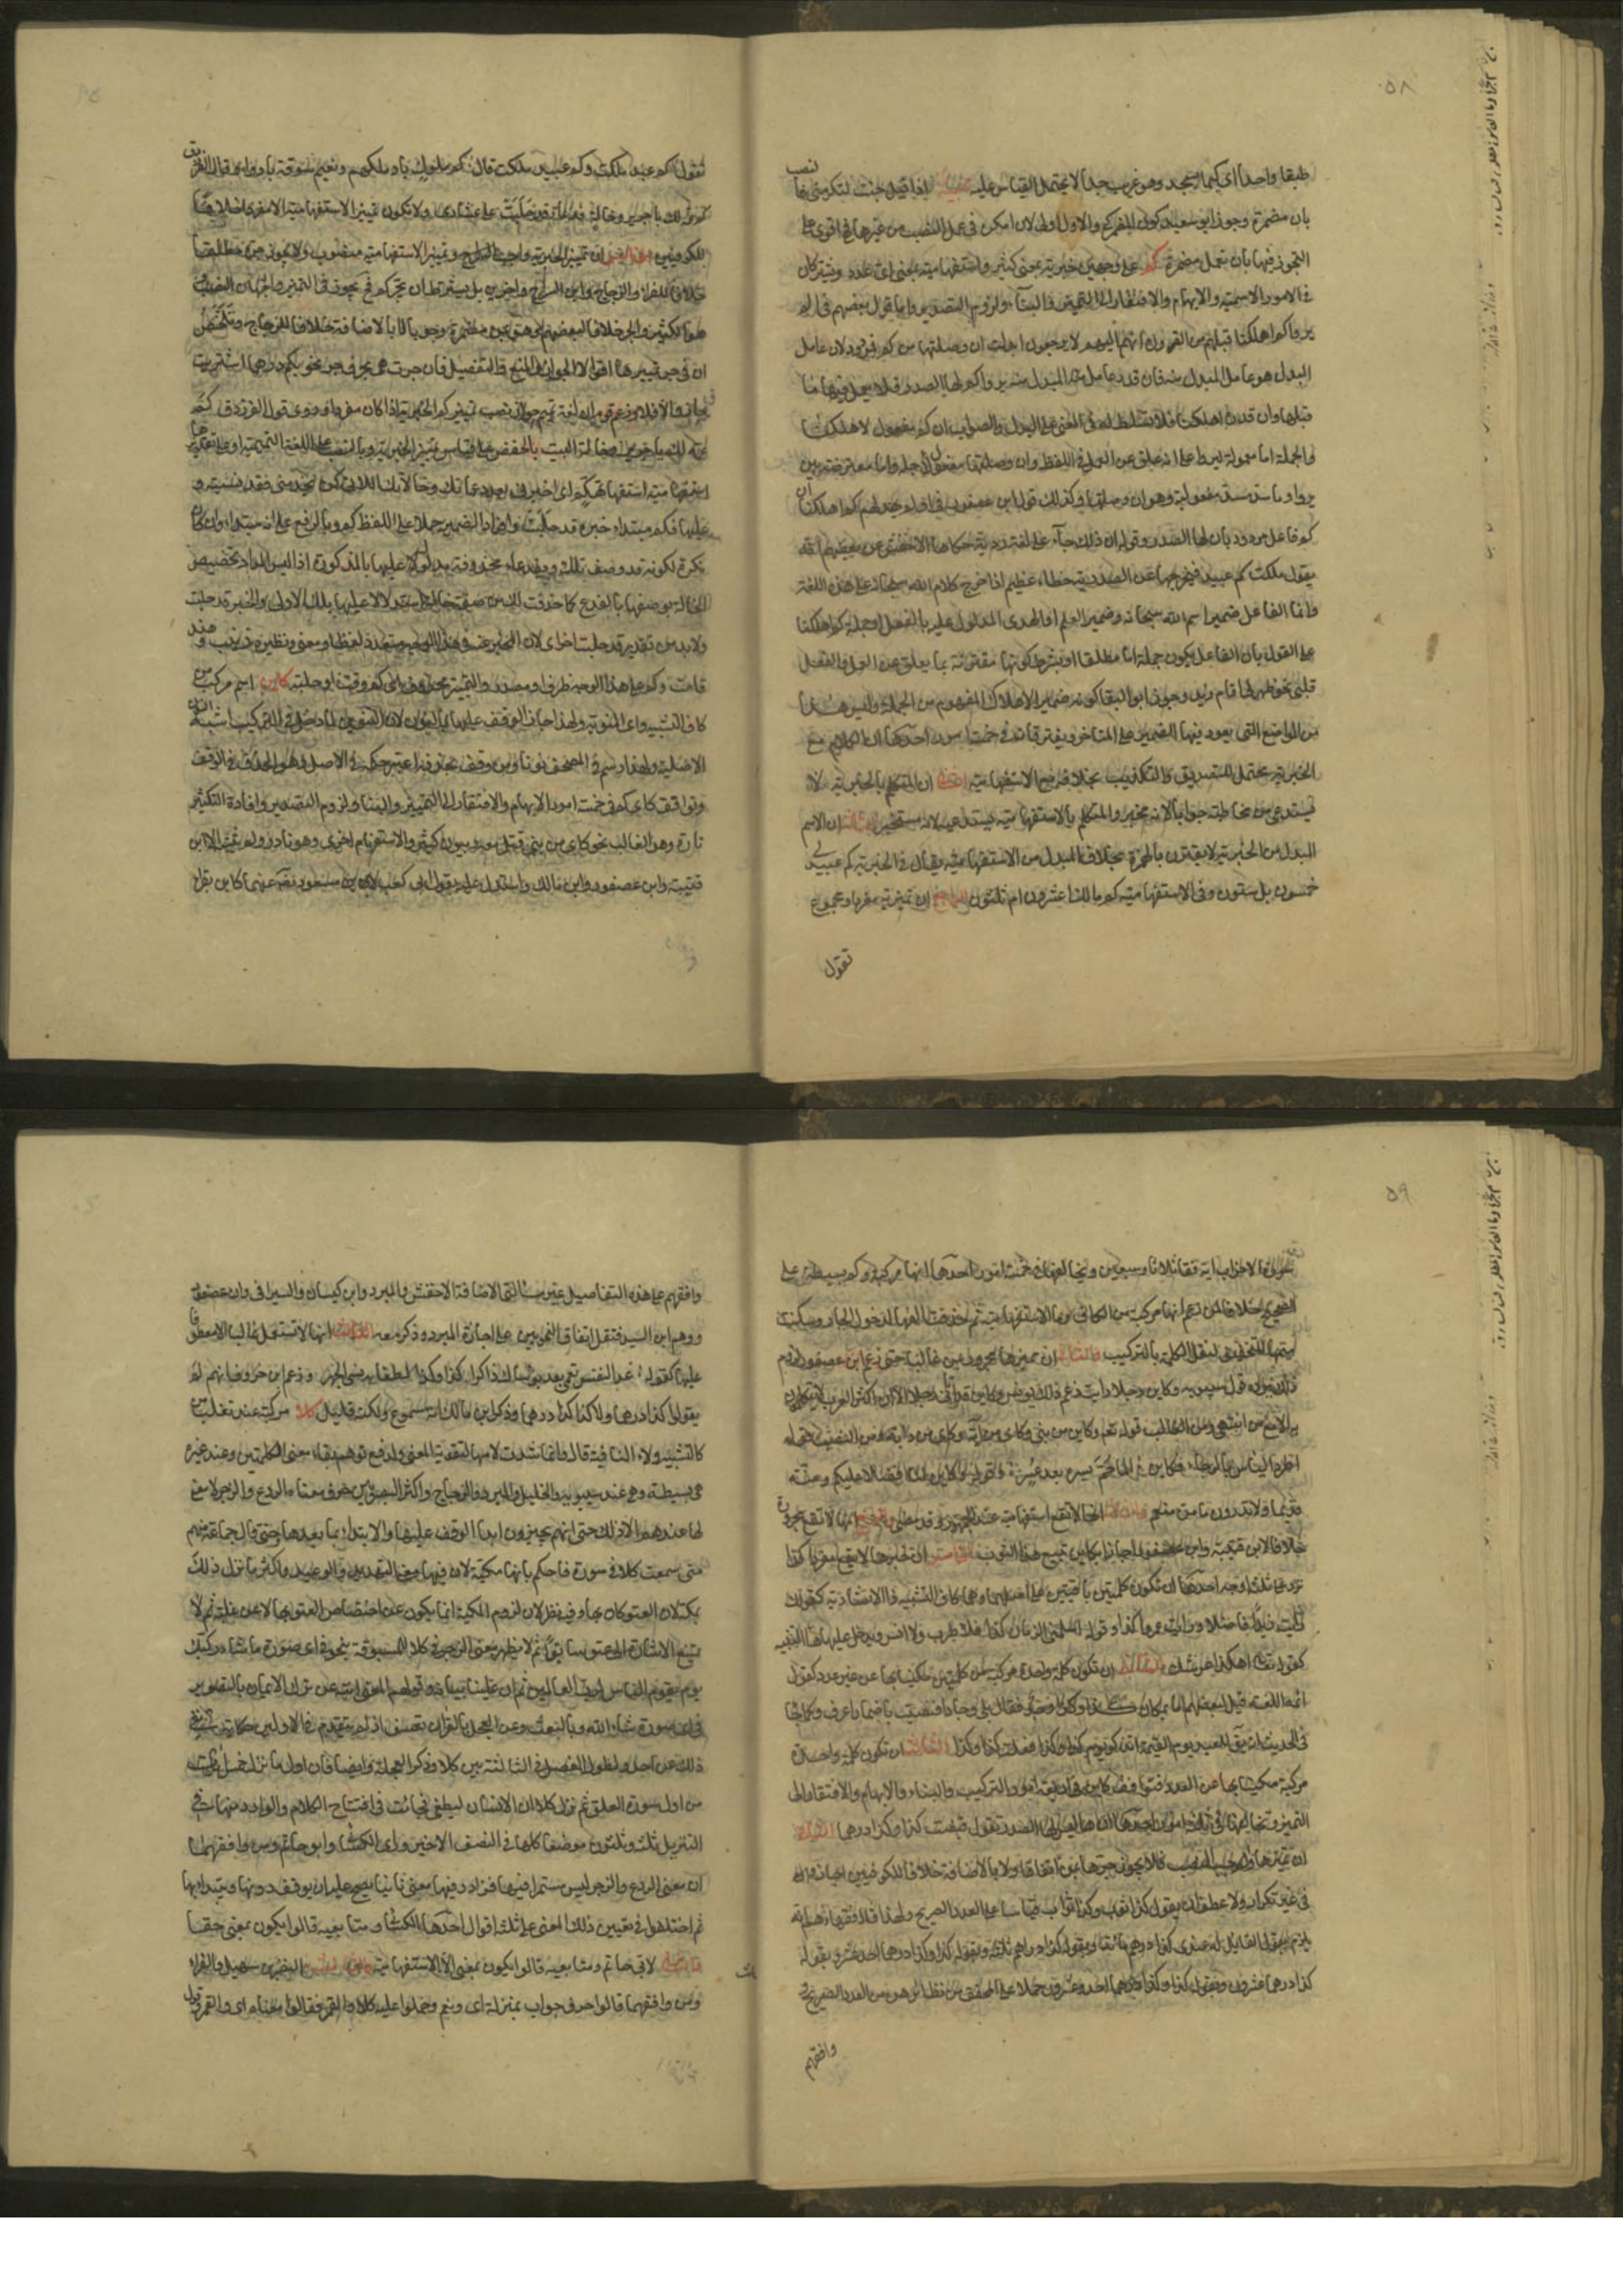 ٥٨
طبقا واحدا اى كيما يسجد وهو غريب جدا لا يحتمل القياس عليه تنبيه اذا قيل جئت لتكرمنى فالنصب
بان مضمرة وجوز ابو سعيد كون المضمر كى والاول اولى لان ان امكن فى عمل النصب من غيرها فهى اقوى على
التجوز فيها بان تعمل مضمرة كم على وجهين خبرية بمعنى كثير واستفهامية بمعنى اى عدد ويشتركان
فى امور الاسمية والابهام والافتقار الى التمييز والبناء ولزوم التصدير واما قول بعضهم فى الم
يروا كم اهلكنا قبلهم من القرون انهم اليهم لا يرجعون ابدلت ان وصلتها من كم فمردود لان عامل
البدل هو عامل المبدل منه فان قدر عامل المبدل منه يروا فكم لها الصدر فلا يعمل فيها ما
قبلها وان قدر اهلكنا فلا تسلط له فى المعنى على البدل والصواب ان كم مفعول لاهلكنا
والجملة اما معمولة ليروا على انه علق عن العمل فى اللفظ وان وصلتها مفعول لاجله واما معترضة بين
يروا وما سد مسد مفعوليه وهو ان وصلتها وكذلك قول ابن عصفور فى اولم يهد لهم كم اهلكنا ان
كم فاعل مردود بان لها الصدر وقوله ان ذلك جاء على لغة ردية حكاها الاخفش عن بعضهم انه
يقول ملكت كم عبيد فيخرجها عن الصدرية خطاء عظيم اذا خرج كلام الله سبحانه على هذه اللغة
وانما الفاعل ضمير اسم الله سبحانه وضمير العلم او الهدى المدلول عليه بالفعل او جملة كم اهلكنا
على القول بان الفاعل يكون جملة اما مطلقا او بشرط كونها مقترنة بما يعلق عن العمل والفعل
قلبى نحو ظهر لى اقام زيد وجوز ابو البقا كونه ضمير الاهلاك المفهوم من الجملة وليس هذا
من المواضع التى يعود فيها الضمير على المتاخر ويفترقان فى خمسة امور احدها ان الكلام مع
الخبرية محتمل للتصديق والتكذيب بخلافه مع الاستفهامية الثانى ان المتكلم بالخبرية لا
يستدعى من مخاطبه جوابا لانه مخبر والمتكلم بالاستفهامية يستدعيه لانه مستخبر الثالث ان الاسم
المبدل من الخبرية لا يقترن بالهمزة بخلاف المبدل من الاستفهامية يقال فى الخبرية كم عبيد لى
خمسون بل ستون وفى الاستفهامية كم مالك اعشرون ام ثلثون الرابع ان تمييزه مفرد او مجموع
تقول
تقول كم عبد ملكت وكم عبيد ملكت قال كم ملوك باد ملكهم ونعيم سوقة بادوا وقال الفرزدق
كم عمة لك يا جرير وخالة فدعاء قد حلبت على عشارى ولا يكون تمييز الاستفهامية الا مفردا خلافا
للكوفيين الخامس ان تمييز الخبرية واجب الجر وتمييز الاستفهامية منصوب ولا يجوز جره مطلقا
خلافا للفراء والزجاج وابن السراج واخرين بل يشترط ان تجر كم فحينئذ يجوز فى التمييز وجهان النصب
هو الكثير والجر خلافا لبعضهم وهو بمن مضمرة وجوبا لا بالاضافة خلافا للزجاج وتلخص
ان فى جر تمييزها اقوالا الجواز والمنع والتفصيل فان جرت هى بحرف جر نحو بكم درهم اشتريت
جاز والا فلا وزعم قوم ان لغة تميم جواز نصب تمييز كم الخبرية اذا كان مفردا وروى قول الفرزدق كم
عمة لك يا جرير وخالة البيت بالخفض على قياس تمييز الخبرية وبالنصب على اللغة التميمية او على تقديرها
استفهامية استفهام تهكم اى اخبرنى بعدد عماتك وخالاتك اللاتى كن يخدمننى فقد نسيته و
عليها فكم مبتداء خبره قد حلبت وافرد الضمير حملا على اللفظ كم وبالرفع على انه مبتداء وان كان
نكرة لكونه قد وصف بلك وبفدعاء محذوفة مدلول عليها بالمذكورة اذ ليس المراد تخصيص
الخالة بوصفها بالفدع كما حذفت لك من صفة خالة استدلالا عليها بلك الاولى والخبر قد حلبت
ولابد من تقدير قد حلبت اخرى لان المخبر عنه فى هذا الوجه متعدد لفظا ومعنى ونظيره زينب وهند
قامت وكم على هذا الوجه ظرف او مصدر والتمييز محذوف اى كم وقت او حلبة كاين اسم مركب من
كاف التشبيه واى المنونة ولهذا جاز الوقف عليها بالنون لان التنوين لما دخل فى التركيب اشبه النون
الاصلية ولهذا رسم فى المصحف نونا ومن وقف بحذفه اعتبر حكمه فى الاصل وهو الحذف فى الوقف
وتوافق كاى كم فى خمسة امور الابهام والافتقار الى التمييز والبناء ولزوم التصدير وافادة التكثير
تارة وهو الغالب نحو وكاى من نبى قتل معه ربيون كثير والاستفهام اخرى وهو نادر ولم يثبته الا ابن
قتيبة وابن عصفور وابن مالك واستدل عليه بقول ابى كعب لابن مسعود رضى الله عنهما كاين تقرا
٥٩
سورة الاحزاب اية فقال ثلاثا وسبعين ويخالفها فى خمسة امور احدها انها مركبة وكم بسيطة على
الصحيح خلافا لمن زعم انها مركبة من الكاف وما الاستفهامية ثم حذفت الفها لدخول الجار وسكنت
ميمها للتخفيف لثقل الكلمة بالتركيب والثانى ان مميزها مجرور بمن غالبا حتى زعم ابن عصفور لزوم
ذلك ويرده قول سيبويه وكاين رجلا رايت زعم ذلك يونس وكاين قد اتانى رجلا الا ان اكثر العرب لا يتكلمون
به الا مع من انتهى ومن الغالب قوله تعالى وكاين من نبى وكاين من اية وكاين من دابة ومن النصب قوله
اطرد الياس بالرجاء فكاين الما حم يسره بعد عسر وقوله وكاين لنا فضلا عليكم ومنة
قديما ولا تدرون ما من منعم والثالث انها لا تقع استفهامية عند الجمهور وقد مضى والرابع انها لا تقع مجرورة
خلافا لابن قتيبة وابن عصفور اجازا بكاين تبيع هذا الثوب الخامس ان خبرها لا يقع مفردا كذا
ترد على ثلثة اوجه احدها ان تكون كلمتين باقيتين على اصلهما وهما كاف التشبيه وذا الاشارية كقولك
رايت زيدا فاضلا ورايت عمرا كذا وقوله واسلمنى الزمان كذا فلا طرب ولا انس ويدخل عليها ها التنبيه
كقوله تعالى اهكذا عرشك الثانى ان تكون كلمة واحدة مركبة من كلمتين مكنيا بها عن غير عدد كقول
ائمة اللغة قيل لبعضهم اما بمكان كذا وكذا وجذ فقال بلى وجاذا فنصب باضمار اعرف وكما جاء
فى الحديث انه يقال للعبد يوم القيمة اتذكر يوم كذا وكذا فعلت كذا وكذا الثالث ان تكون كلمة واحدة
مركبة مكنيا بها عن العدد فتوافق كاين فى اربعة امور التركيب والبناء والابهام والافتقار الى
التمييز وتخالفها فى ثلثة امور احدها انها ليس لها الصدر تقول قبضت كذا وكذا درهما الثانى
ان تمييزها واجب النصب فلا يجوز جره بمن اتفاقا ولا بالاضافة خلافا للكوفيين اجازوا
فى غير تكرار ولا عطف ان يقول كذا ثوب وكذا اثواب قياسا على العدد الصريح ولهذا قال فقهاؤهم انه
يلزم بقول القايل له عندى كذا درهم مائة وبقوله كذا دراهم ثلثة وبقوله كذا وكذا درهما احد عشر وبقوله
كذا درهما عشرون وبقوله كذا وكذا درهما احد وعشرون حملا على المحقق من نظائرهن من العدد الصريح
وافقهم
وافقهم على هذه التفاصيل غير مسئلتى الاضافة الاخفش والمبرد وابن كيسان والسيرافى وابن عصفور
ووهم ابن السيد فنقل اتفاق النحويين على اجازة المبرد وذكر معه الثالث انها لا تستعمل غالبا الا معطوفا
عليها كقوله عد النفس نعمى بعد بؤساك ذاكرا كذا وكذا لطفا به نسى الجهد وزعم ابن خروف انهم لم
يقولوا كذا درهما ولا كذا كذا درهما وذكر ابن مالك انه مسموع ولكنه قليل كلا مركبة عند ثعلب من
كاف التشبيه ولا النافية قال وانما شددت لامها لتقوية المعنى ولدفع توهم بقاء معنى الكلمتين وعند غيره
هى بسيطة وهى عند سيبويه والخليل والمبرد والزجاج واكثر البصريين حرف معناه الردع والزجر لا معنى
لها عندهم الا ذلك حتى انهم يجيزون ابدا الوقف عليها والابتداء بما بعدها حتى قال جماعة منهم
متى سمعت كلا فى سورة فاحكم بانها مكية لان فيها معنى التهديد والوعيد واكثر ما نزل ذلك
بمكة لان العتو كان بها وفيه نظر لان لزوم المكية انما يكون عن اختصاص العتو بها لا عن غلبته ثم لا
يمتنع الاشارة الى عتو سابق ثم لا يظهر معنى الزجر فى كلا المسبوقة بنحو فى اى صورة ما شاء ركبك
يوم يقوم الناس لرب العالمين ثم ان علينا بيانه وقولهم المعنى انته عن ترك الايمان بالتصوير
فى اى صورة شاء الله وبالبعث وعن العجل بالقران تعسف اذ لم يتقدم فى الاولين حكاية نفى
ذلك عن احد ولطول الفصل فى الثالثة بين كلا وذكر العجلة وايضا فان اول ما نزل خمس ايات
من اول سورة العلق ثم نزل كلا ان الانسان ليطغى فجائت فى افتتاح الكلام والوارد منها فى
التنزيل ثلث وثلثون موضعا كلها فى النصف الاخير وراى الكسائى وابو حاتم ومن وافقهما
ان معنى الردع والزجر ليس مستمرا فيها فزادوا فيها معنى ثانيا يصح عليه ان يوقف دونها ويبتدا بها
ثم اختلفوا فى تعيين ذلك المعنى على ثلثة اقوال احدها للكسائى ومتابعيه قالوا يكون بمعنى حقا
والثانى لابى حاتم ومتابعيه قالوا يكون بمعنى الا الاستفهامية والثالث للنضر بن شميل والفراء
ومن وافقهما قالوا حرف جواب بمنزلة اى ونعم وحملوا عليه كلا والقمر فقالوا معناه اى والقمر وقول